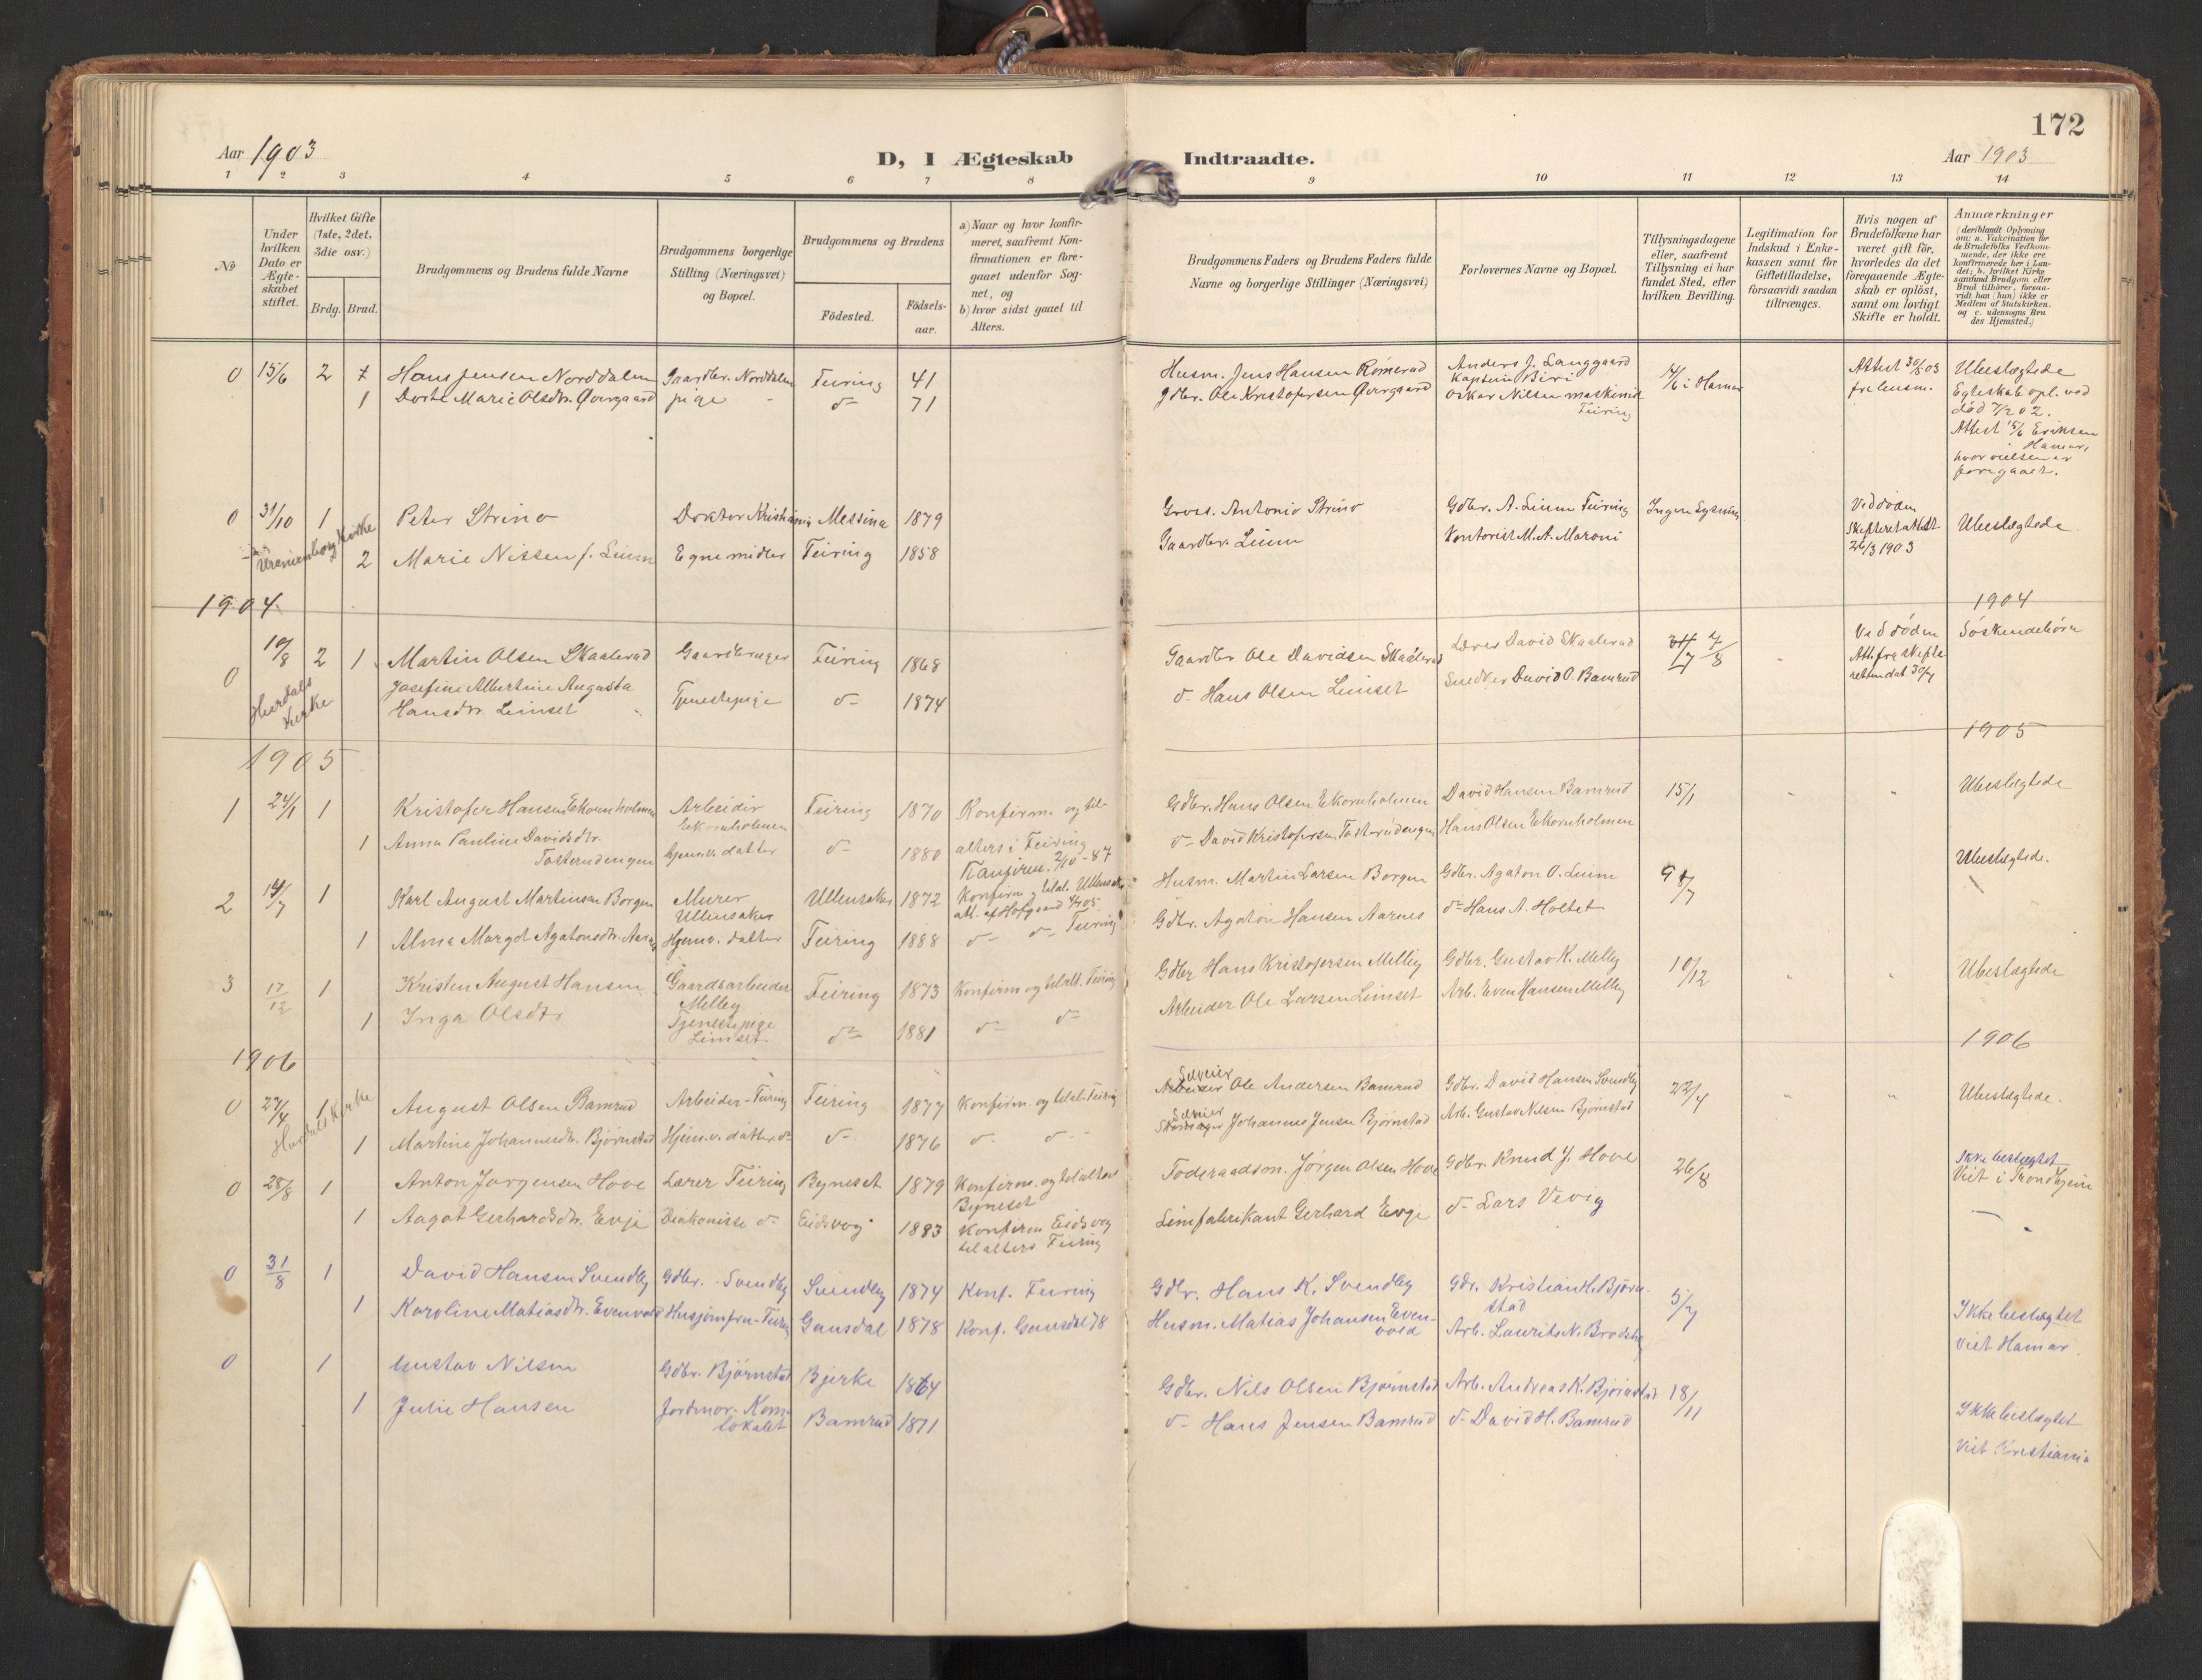 172
Aar 1903
D, I Ægteskab Indtraadte.
Aar 1903
1 2 3 4 5 6 7 8 9 10 11 12 13 14
No
Under hvilken Dato er Ægteskabet stiftet.
Hvilket Gifte (1ste, 2det, 3die osv.)
Brdg. Brud.
Brudgommens og Brudens fulde Navne
Brudgommens borgerlige Stilling (Næringsvei) og Bopæl.
Brudgommens og Brudens
Födested. Födselsaar.
a) Naar og hvor konfirmeret, saafremt Konfirmationen er foregaaet udenfor Sognet, og
b) hvor sidst gaaet til Alters.
Brudgommens Faders og Brudens Faders fulde Navne og borgerlige Stillinger (Næringsvei)
Forlovernes Navne og Bopæl.
Tillysningsdagene eller, saafremt Tillysning ei har fundet Sted, efter hvilken Bevilling.
Legitimation for Indskud i Enkekassen samt for Giftetilladelse, forsaavidt saadan tiltrænges.
Hvis nogen af Brudefolkene har været gift för, hvorledes da det foregaaende Ægteskab er oplöst, samt om lovligt Skifte er holdt.
Anmærkninger (deriblandt Oplysning om: a. Vakcination for de Brudefolks Vedkommende, der ikke ere konfirmerede her i Landet; b. hvilket Kirkesamfund Brudgom eller Brud tilhörer, forsaavidt han (hun) ikke er Medlem af Statskirken. og c. udensogns Brudes Hjemsted.)
0 15/6 2 Hans Jensen Norddalen Gaardbr. Norddalen Feiring 41 Husm. Jens Hansen Römerud Anders J. Langgaard Kaptein Biri 14/6 i Hamar Attest 30/5 03 fra lensm. Ubeslægtede
1 Dorte Marie Olsdtr. Øvergaard pige d- 71 Gdbr. Ole Kristofersen Øvergaard Oskar Nilsen maskinist Feiring Egteskab opl. ved död 7/2 02.
Attest 15/6 Eriksen Hamar,
hvor vielsen er foregaaet.
0 31/10 1 Peter Strino Doktor Kristiania Messina 1879 Gross. Antonio Strino Gdbr. A. Linn Feiring Ingen Lysning Ved döden Skifteretattest 26/3 1903 Ubeslægtede
Uranienborg Kirke
2 Marie Nissen f. Linn Egne midler Feiring 1858 Gaardbr. Linn Kontorist M. A. Maroni
1904 1904
0 10/8 2 1 Martin Olsen Skaalerud Gaardbruger Feiring 1868 Gaardbr Ole Davidsen Skaalerud Lærer David Skaalerud 31/7 7/8 Ved döden Att. fra skifteretten dat. 30/7 Söskendebörn
Hurdals Kirke
Josefine Albertine Augusta Hansdtr. Linset Tjenestepige d- 1874 d- Hans Olsen Linset Snedker David O. Bamrud
1905 1905
1 24/1 1 Kristofer Hansen Ekornholmen Arbeider Ekornholmen Feiring 1870 Konfirm. og til- Gdbr. Hans Olsen Ekornholmen David Hansen Bamrud 15/1 Ubeslægtede
1 Anna Pauline Davidsdtr. Tosterudengen hjemv. datter d- 1880 alters i Feiring d- David Kristofersen Tosterudengen Hans Olsen Ekornholmen
Konfirm. 2/10-87
2 14/7 1 Karl August Martinsen Borgen Murer Ullensaker Ullensaker 1872 Husm. Martin Larsen Borgen Gdbr. Agaton O. Linn 9/7 Ubeslægtede.
1 Alma Margot Agatonsdtr. Aarnes Hjemv. datter Feiring 1888 d- d- Feiring Gdbr. Agaton Hansen Aarnes d- Hans A. Holtet
3 17/12 1 Kristen August Hansen Gaardsarbeider Melby Feiring 1873 Konfirm og tilalt. Feiring Gdbr Hans Kristofersen Melby Gdbr. Gustav K. Melby 10/12 Ubeslægtede
1 Inga Olsdtr Tjenestepige Linset. d- 1881 d- d- Arbeider Ole Larsen Linset Arb. Even Hansen Melby
1906 1906
0 27/4 1 August Olsen Bamrud Arbeider-Feiring Feiring 1877 Konfirm. og tilalt. Feiring Selveier Ole Andersen Bamrud Gdbr. David Hansen Svendby 22/4 Ubeslægtede.
Hurdals Kirke
1 Martine Johannesdtr. Bjørnstad Hjemv. datter d- d- 1876 d- d- Selveier Johannes Jensen Bjørnstad Arb. Gustav Nilsen Bjørnstad
0 28/8 1 Anton Jørgensen Hove Lærer Feiring Byneset 1879 Konfirm. og til alters Byneset Föderaadsm. Jørgen Olsen Hove Gdbr. Knud J. Hove 26/8 Ikke beslægtet Viet i Trondhjem
1 Aagot Gerhardsdtr. Evje Diakonisse d- Eidsvog 1883 Konfirm Eidsvog til alters Feiring Limfabrikant Gerhard Evje d- Lars Vevig
0 31/8 1 David Hansen Svendby Gdbr. Svendby Svendby 1874 Konf. Feiring Gdbr. Hans K. Svendby Gdr. Kristian H. Bjørnstad 5/7 Ikke beslægtet
1 Karoline Matiasdtr. Evenvold Husjomfru-Feiring Gausdal 1878 Konf. Gausdal 78 Husm. Matias Johansen Evenvold Arb. Laurits N. Brodshg Viet Hamar.
0 1 Gustav Nilsen Gdbr. Bjørnstad Bjerke 1864 Gdbr. Nils Olsen Bjørnstad Arb. Andreas K. Bjørnstad 18/11 Ikke beslægtet
1 Julie Hansen Jordmor. Kom. lokalet Bamrud 1871 d- Hans Jensen Bamrud d- David H. Bamrud Viet Kristiania